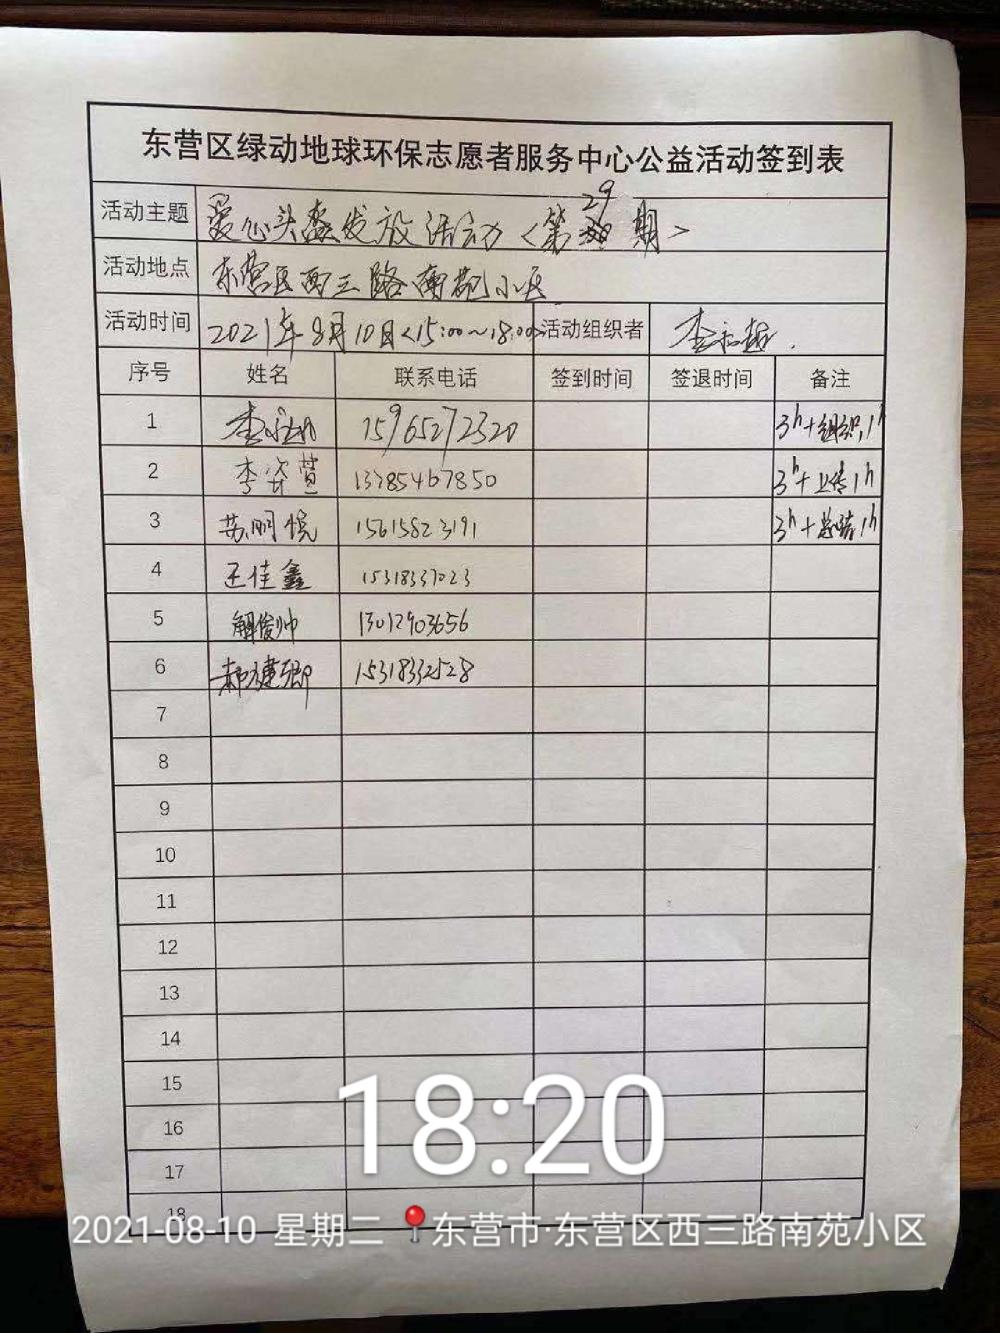 东营区绿动地球环保志愿者服务中心公益活动签到表
活动主题 爱心头盔发放活动<第29期>
活动地点 东营区西三路南苑小区
活动时间 2021年8月10日<15:00~18:00> 活动组织者
序号 姓名 联系电话 签到时间 签退时间 备注
1 15965272320 3h+组织1h
2 李姿萱 13785467850 3h+上传1h
3 苏明悦 15615823191 3h+总结1h
4 王佳鑫 15318337023
5 解俊帅 13012903656
6 郝建卿 15318332528
7
8
9
10
11
12
13
14
15
16
17
18
18:20
2021-08-10 星期二 东营市·东营区西三路南苑小区